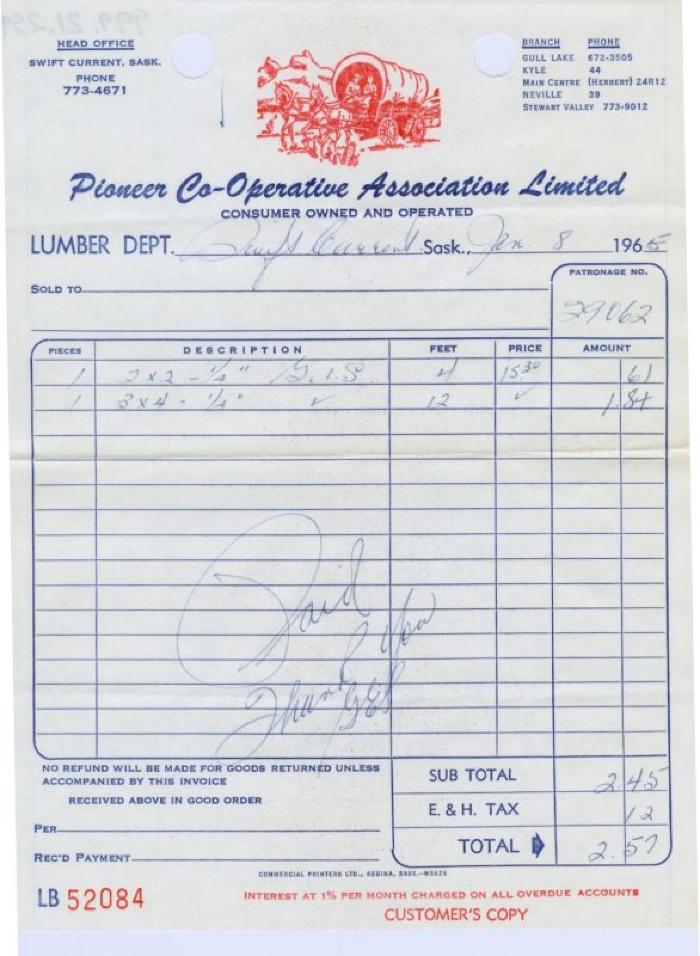 HEAD OFFICE
SWIFT CURRENT, SASK.
PHONE
773-4671
BRANCH PHONE
GULL LAKE 672-3505
KYLE 44
MAIN CENTRE (HERBERT) 24R12
NEVILLE 39
STEWART VALLEY 773-9012
Pioneer Co-Operative Association Limited
CONSUMER OWNED AND OPERATED
LUMBER DEPT. Swift Current Sask., Jan. 8 1965
PATRONAGE NO.
SOLD TO
39062
PIECES DESCRIPTION FEET PRICE AMOUNT
1 2x2 - 1/4" G.I.S. 4 15.30 61
1 3x4 - 1/4" ✓ 12 ✓ 1.84
Paid
Thank You
NO REFUND WILL BE MADE FOR GOODS RETURNED UNLESS
ACCOMPANIED BY THIS INVOICE
RECEIVED ABOVE IN GOOD ORDER
PER
REC'D PAYMENT
SUB TOTAL 2.45
E. & H. TAX 12
TOTAL 2.57
COMMERCIAL PRINTERS LTD., REGINA, SASK.
LB 52084
INTEREST AT 1% PER MONTH CHARGED ON ALL OVERDUE ACCOUNTS
CUSTOMER'S COPY